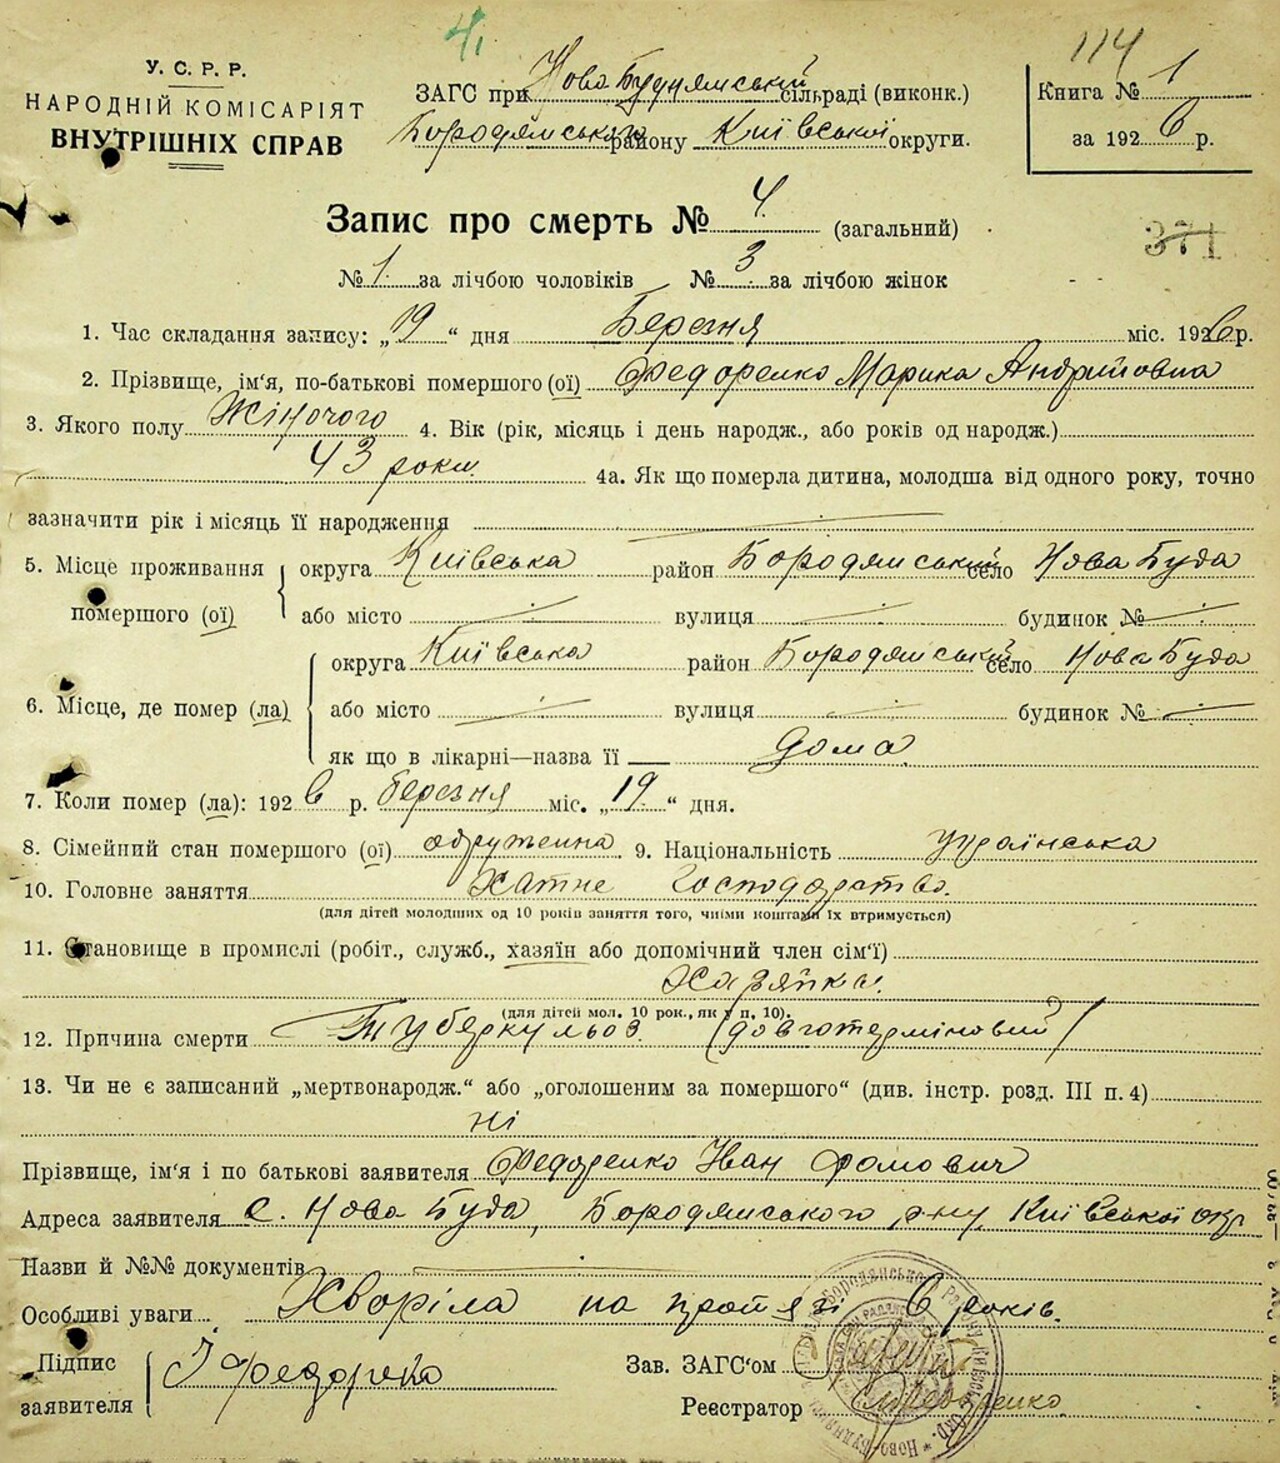 4,
114
У. С. Р. Р.
НАРОДНІЙ КОМІСАРІЯТ
ВНУТРІШНІХ СПРАВ
ЗАГС при Ново Буднямській сільраді (виконк.)
Бородямського району Київської округи.
Книга № 1
за 1926 р.
Запис про смерть № 4. (загальний)
371
№ 1. за лічбою чоловіків № 3. за лічбою жінок
1. Час складання запису: „19“ дня Березня міс. 1926 р.
2. Прізвище, ім‘я, по-батькові помершого (ої) Федоренко Марика Андрійовна
3. Якого полу Жіночого 4. Вік (рік, місяць і день народж., або років од народж.)
43 роки. 4а. Як що померла дитина, молодша від одного року, точно
зазначити рік і місяць її народження
5. Місце проживання помершого (ої) округа Київська район Бородямський село Нова Буда
або місто вулиця будинок №
6. Місце, де помер (ла) округа Київська район Бородямський село Нова Буда
або місто вулиця будинок №
як що в лікарні—назва її дома
7. Коли помер (ла): 1926 р. березня міс. „19.“ дня.
8. Сімейний стан помершого (ої) одружена 9. Національність українська
10. Головне заняття Хатне Господарство.
(для дітей молодших од 10 років заняття того, чиїми коштами їх втримується)
11. Становище в промислі (робіт., служб., хазяїн або допомічний член сім‘ї)
Хазяйка.
(для дітей мол. 10 рок., як у п. 10).
12. Причина смерти Туберкульоз. (довготерміновий)
13. Чи не є записаний „мертвонародж.“ або „оголошеним за помершого“ (див. інстр. розд. III п. 4)
ні
Прізвище, ім‘я і по батькові заявителя Федоренко Іван Фомович
Адреса заявителя с. Нова Буда, Бородямського р-ну Київської окр
Назви й №№ документів
Особливі уваги Хворіла на протязі 6 років.
Підпис заявителя І Федоренко
Зав. ЗАГС‘ом
Реєстратор Федоренко